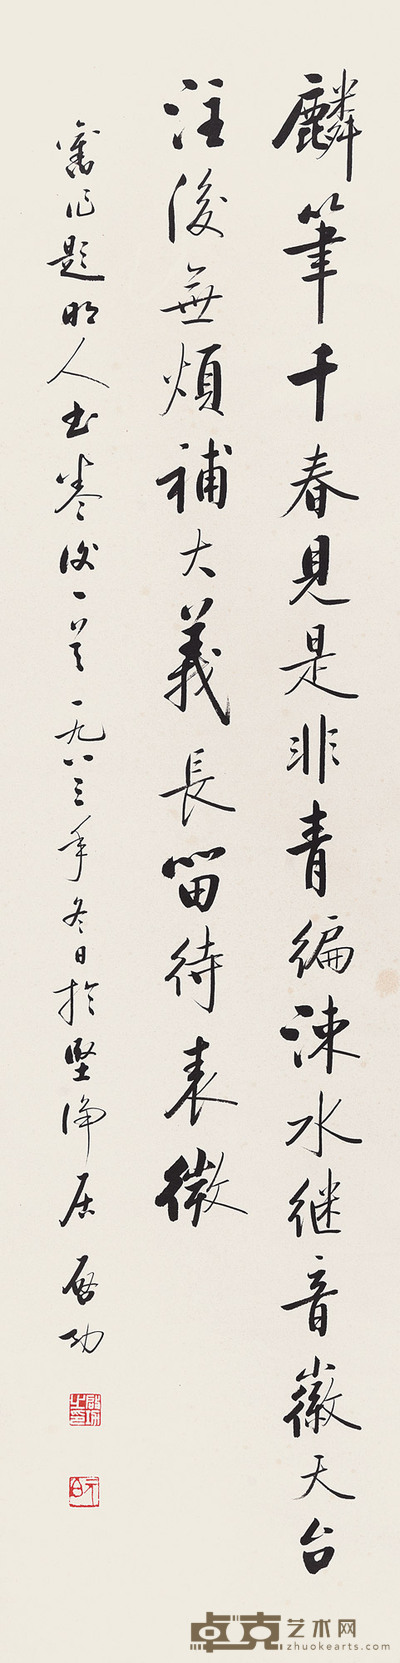 麟筆千春見是非青編涑水継音徽天台
注後無煩補大義長留待表微
舊作題明人書卷後一首一九八三年冬日於堅浄居 启功
啟功之印
元白
卓克艺术网
zhuokearts.com